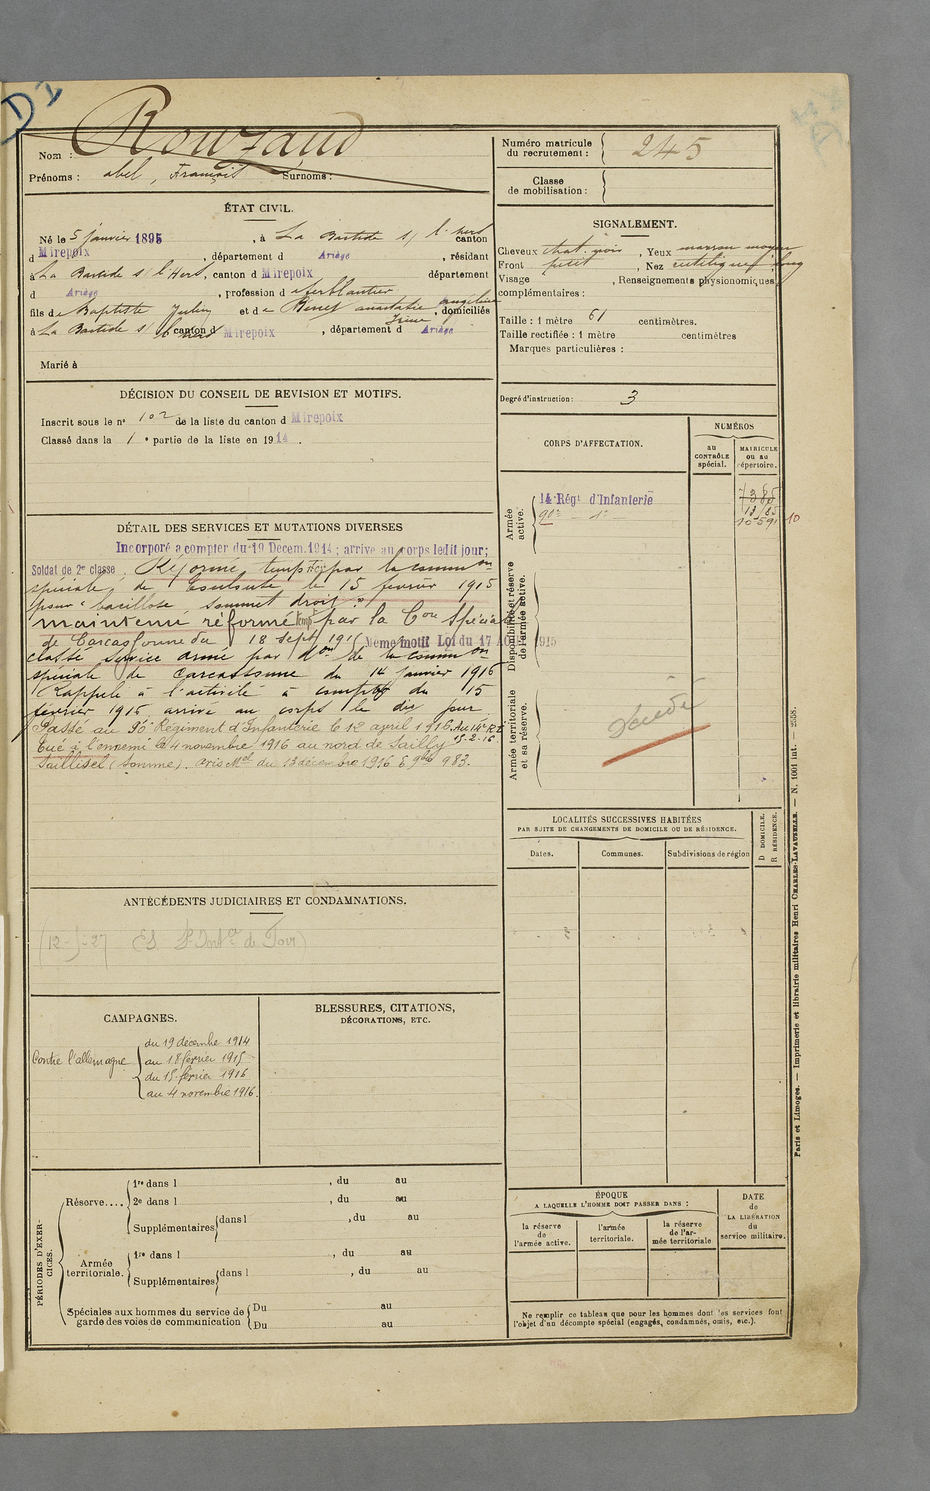 D 1
Rouzaud
Nom :
Prénoms : abel, François Surnoms :
Numéro matricule du recrutement : 245
Classe de mobilisation :
ÉTAT CIVIL.
Né le 5 janvier 1895, à La Bastide s/ l'hers canton
d Mirepoix, département d Ariège, résidant
à La Bastide s/ l'Hers, canton d Mirepoix département
d Ariège, profession d ferblantier
fils de Baptiste Julien et de anastasie angeline, domiciliés
à La Bastide s/ l'hers canton d Mirepoix, département d Ariège
Marié à
SIGNALEMENT.
Cheveux chat. noir, Yeux marron moyen
Front petit, Nez rectiligne long
Visage , Renseignements physionomiques
complémentaires :
Taille : 1 mètre 61 centimètres.
Taille rectifiée : 1 mètre centimètres
Marques particulières :
Degré d'instruction : 3
DÉCISION DU CONSEIL DE REVISION ET MOTIFS.
Inscrit sous le nº 102 de la liste du canton d Mirepoix
Classé dans la 1 e partie de la liste en 1914.
DÉTAIL DES SERVICES ET MUTATIONS DIVERSES
Incorporé à compter du 19 Decem. 1914 ; arrivé au corps ledit jour;
Soldat de 2e classe. Réformé tempre par la common
spéciale de Toulouse le 15 février 1915
pour "bacillose sommet droit".
maintenu réformé temp par la Con Spéciale
de Carcassonne du 18 sept 1915 Même motif Loi du 17 AOUT 1915
classé service armé par don de la common
spéciale de Carcassonne du 14 janvier 1916
Rappelé à l'activité à compter du 15
février 1916 arrivé au corps le dit jour
Passé au 90e Régiment d'Infanterie le 12 avril 1916. Au 14e R.I. 15-2-16
Tué à l'ennemi le 4 novembre 1916 au nord de Sailly
Saillisel (Somme). avis Mel du 13 décembre 1916 983.
CORPS D'AFFECTATION.
NUMÉROS
au CONTRÔLE spécial.
MATRICULE ou au répertoire.
Armée active.
14 Régt d'Infanterie 7385
90e — de — 13185
10591 10
Disponibilité et réserve de l'armée active.
Armée territoriale et sa réserve.
Décédé
LOCALITÉS SUCCESSIVES HABITÉES
PAR SUITE DE CHANGEMENTS DE DOMICILE OU DE RÉSIDENCE.
Dates. Communes. Subdivisions de région
D DOMICILE.
R RÉSIDENCE.
ANTÉCÉDENTS JUDICIAIRES ET CONDAMNATIONS.
CAMPAGNES.
Contre l'allemagne
du 19 décembre 1914
au 18 février 1915
du 15 février 1916
au 4 novembre 1916.
BLESSURES, CITATIONS,
DÉCORATIONS, ETC.
PÉRIODES D'EXERCICES.
Réserve....
1re dans l , du au
2e dans l , du au
Supplémentaires dans l , du au
Armée territoriale.
1re dans l , du au
Supplémentaires dans l , du au
Spéciales aux hommes du service de garde des voies de communication
Du au
Du au
ÉPOQUE
A LAQUELLE L'HOMME DOIT PASSER DANS :
la réserve de l'armée active.
l'armée territoriale.
la réserve de l'armée territoriale
DATE de LA LIBÉRATION du service militaire.
Ne remplir ce tableau que pour les hommes dont les services font
l'objet d'un décompte spécial (engagés, condamnés, omis, etc.).
Paris et Limoges. — Imprimerie et librairie militaires Henri CHARLES-LAVAUZELLE. — N. 1001 int. — 2558.